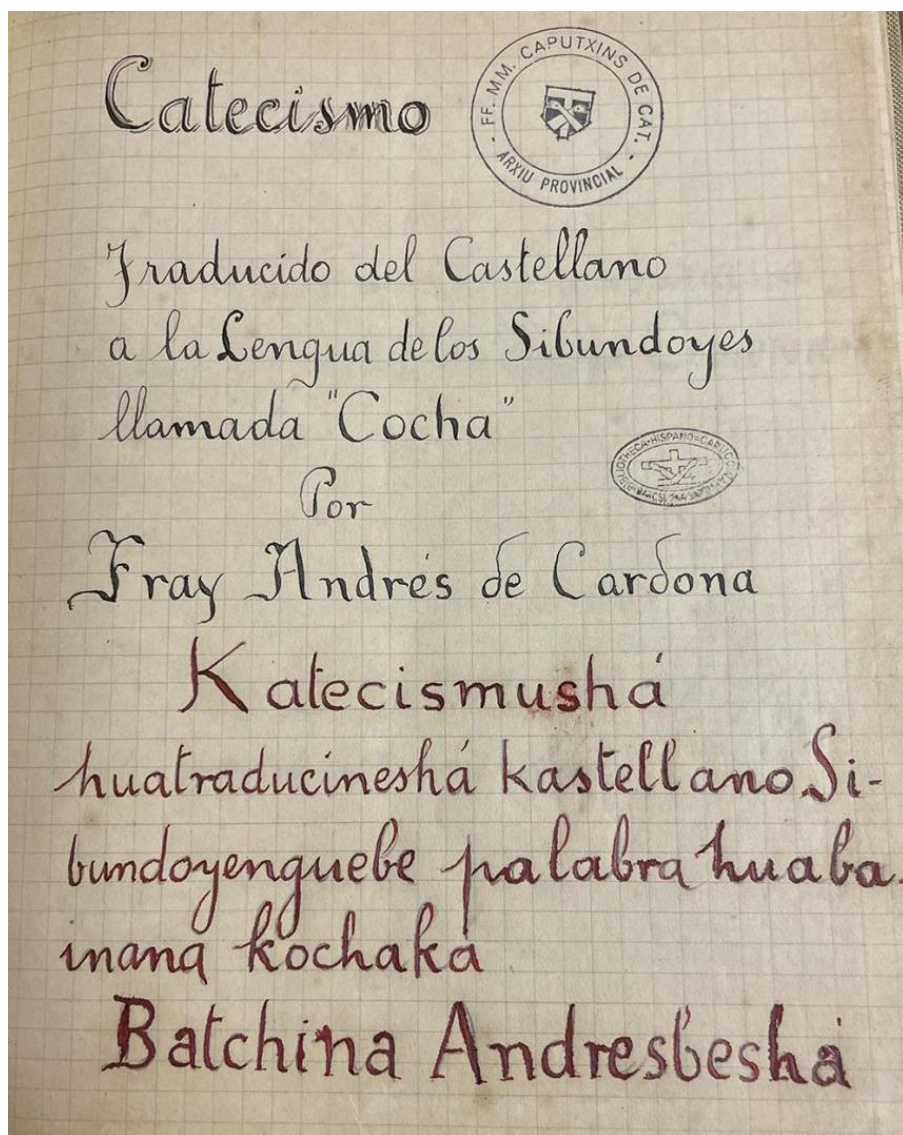 Catecismo
FF. MM. CAPUTXINS DE CAT.
ARXIU PROVINCIAL
Traducido del Castellano
a la Lengua de los Sibundoyes
llamada "Cocha"
BIBLIOTHECA HISPANO-CAPUCCINA
Por
Fray Andrés de Cardona
Katecismushá
huatraducineshá kastellano Si-
bundoyenguebe palabra huaba-
inana kochaká
Batchina Andresbeshá